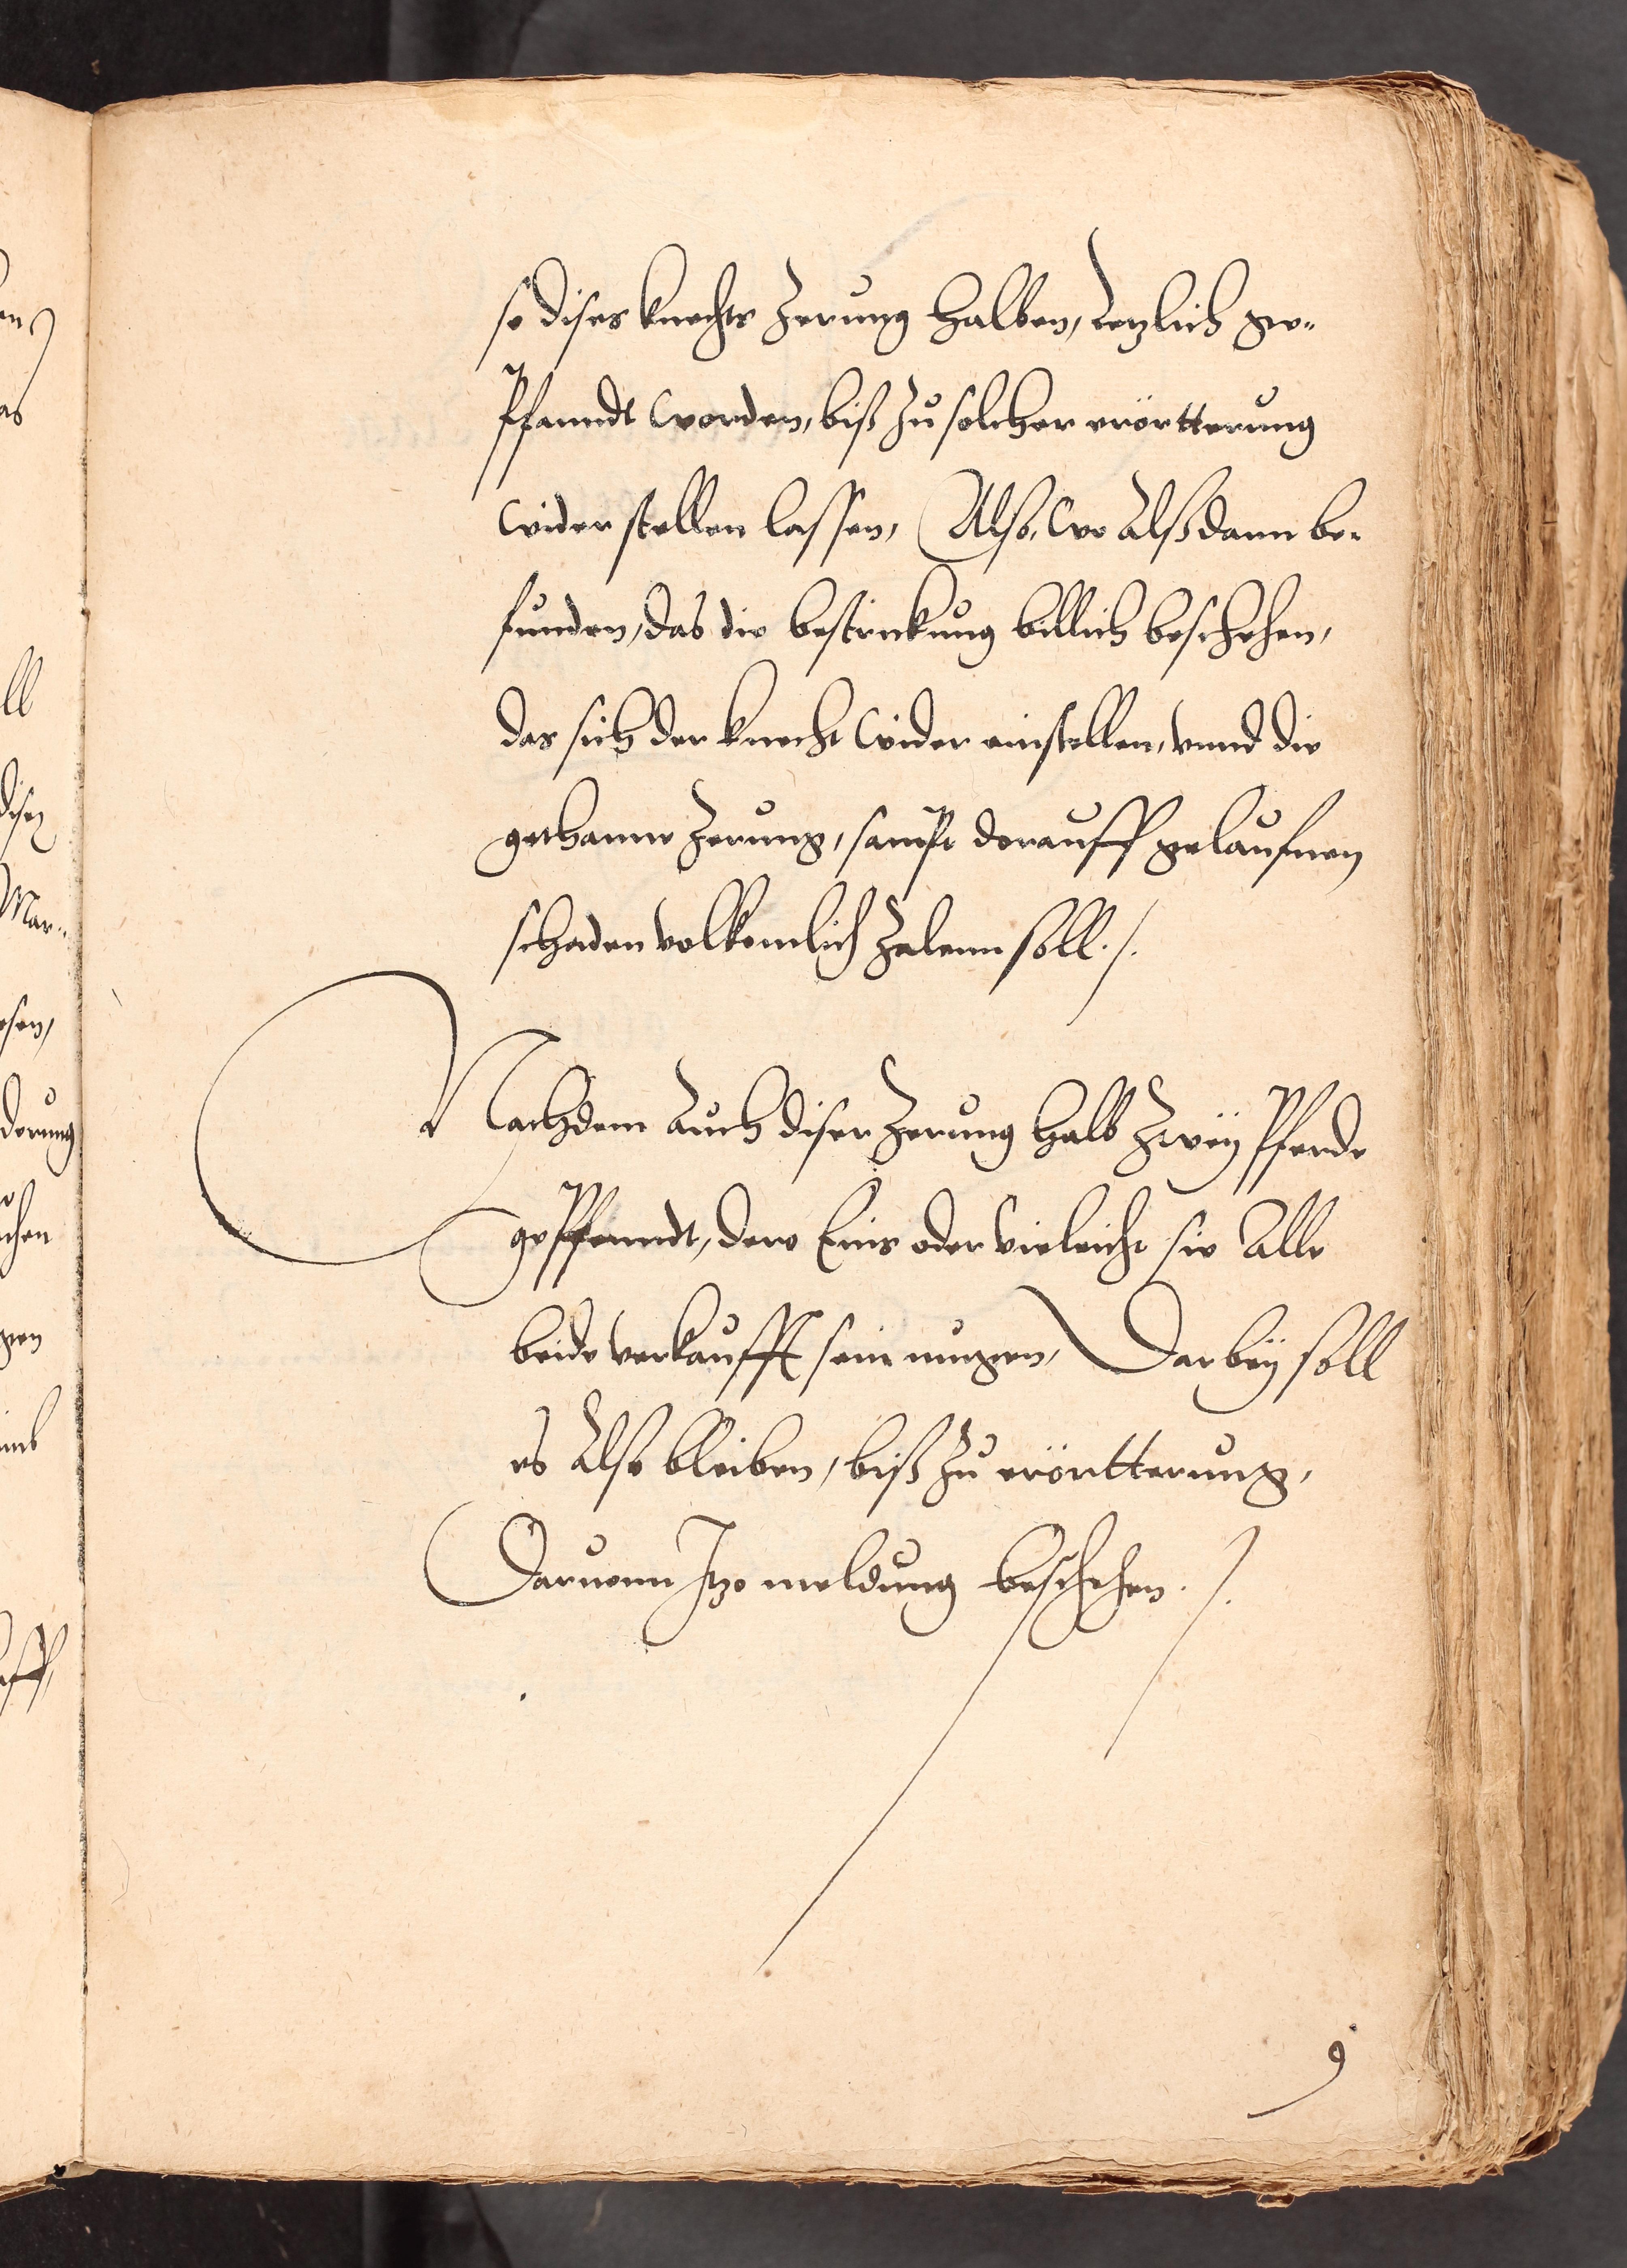 so dises knechts Zerung halben, Letzlich ge-
Pfanndt worden, biß zu solcher erörtterung
wider stellen lassen, Also, wo Alß dann be-
funden, das die bestrickung billich beschehen,
das sich der knecht wider einstellen, vnnd die
gethanne Zerung, sampt dorauff gelaufnen
schaden volkomlich Zalenn soll ./.
Nachdem Auch diser Zerung halb Zwey Pferde
gepfenndt, dero Eins oder vieleicht sie Alle
beide verkaufft sein mugen, Darbey soll
es Also bleiben, biß zu erörtterung,
Daruonn Itzo meldung beschehen ./.
9